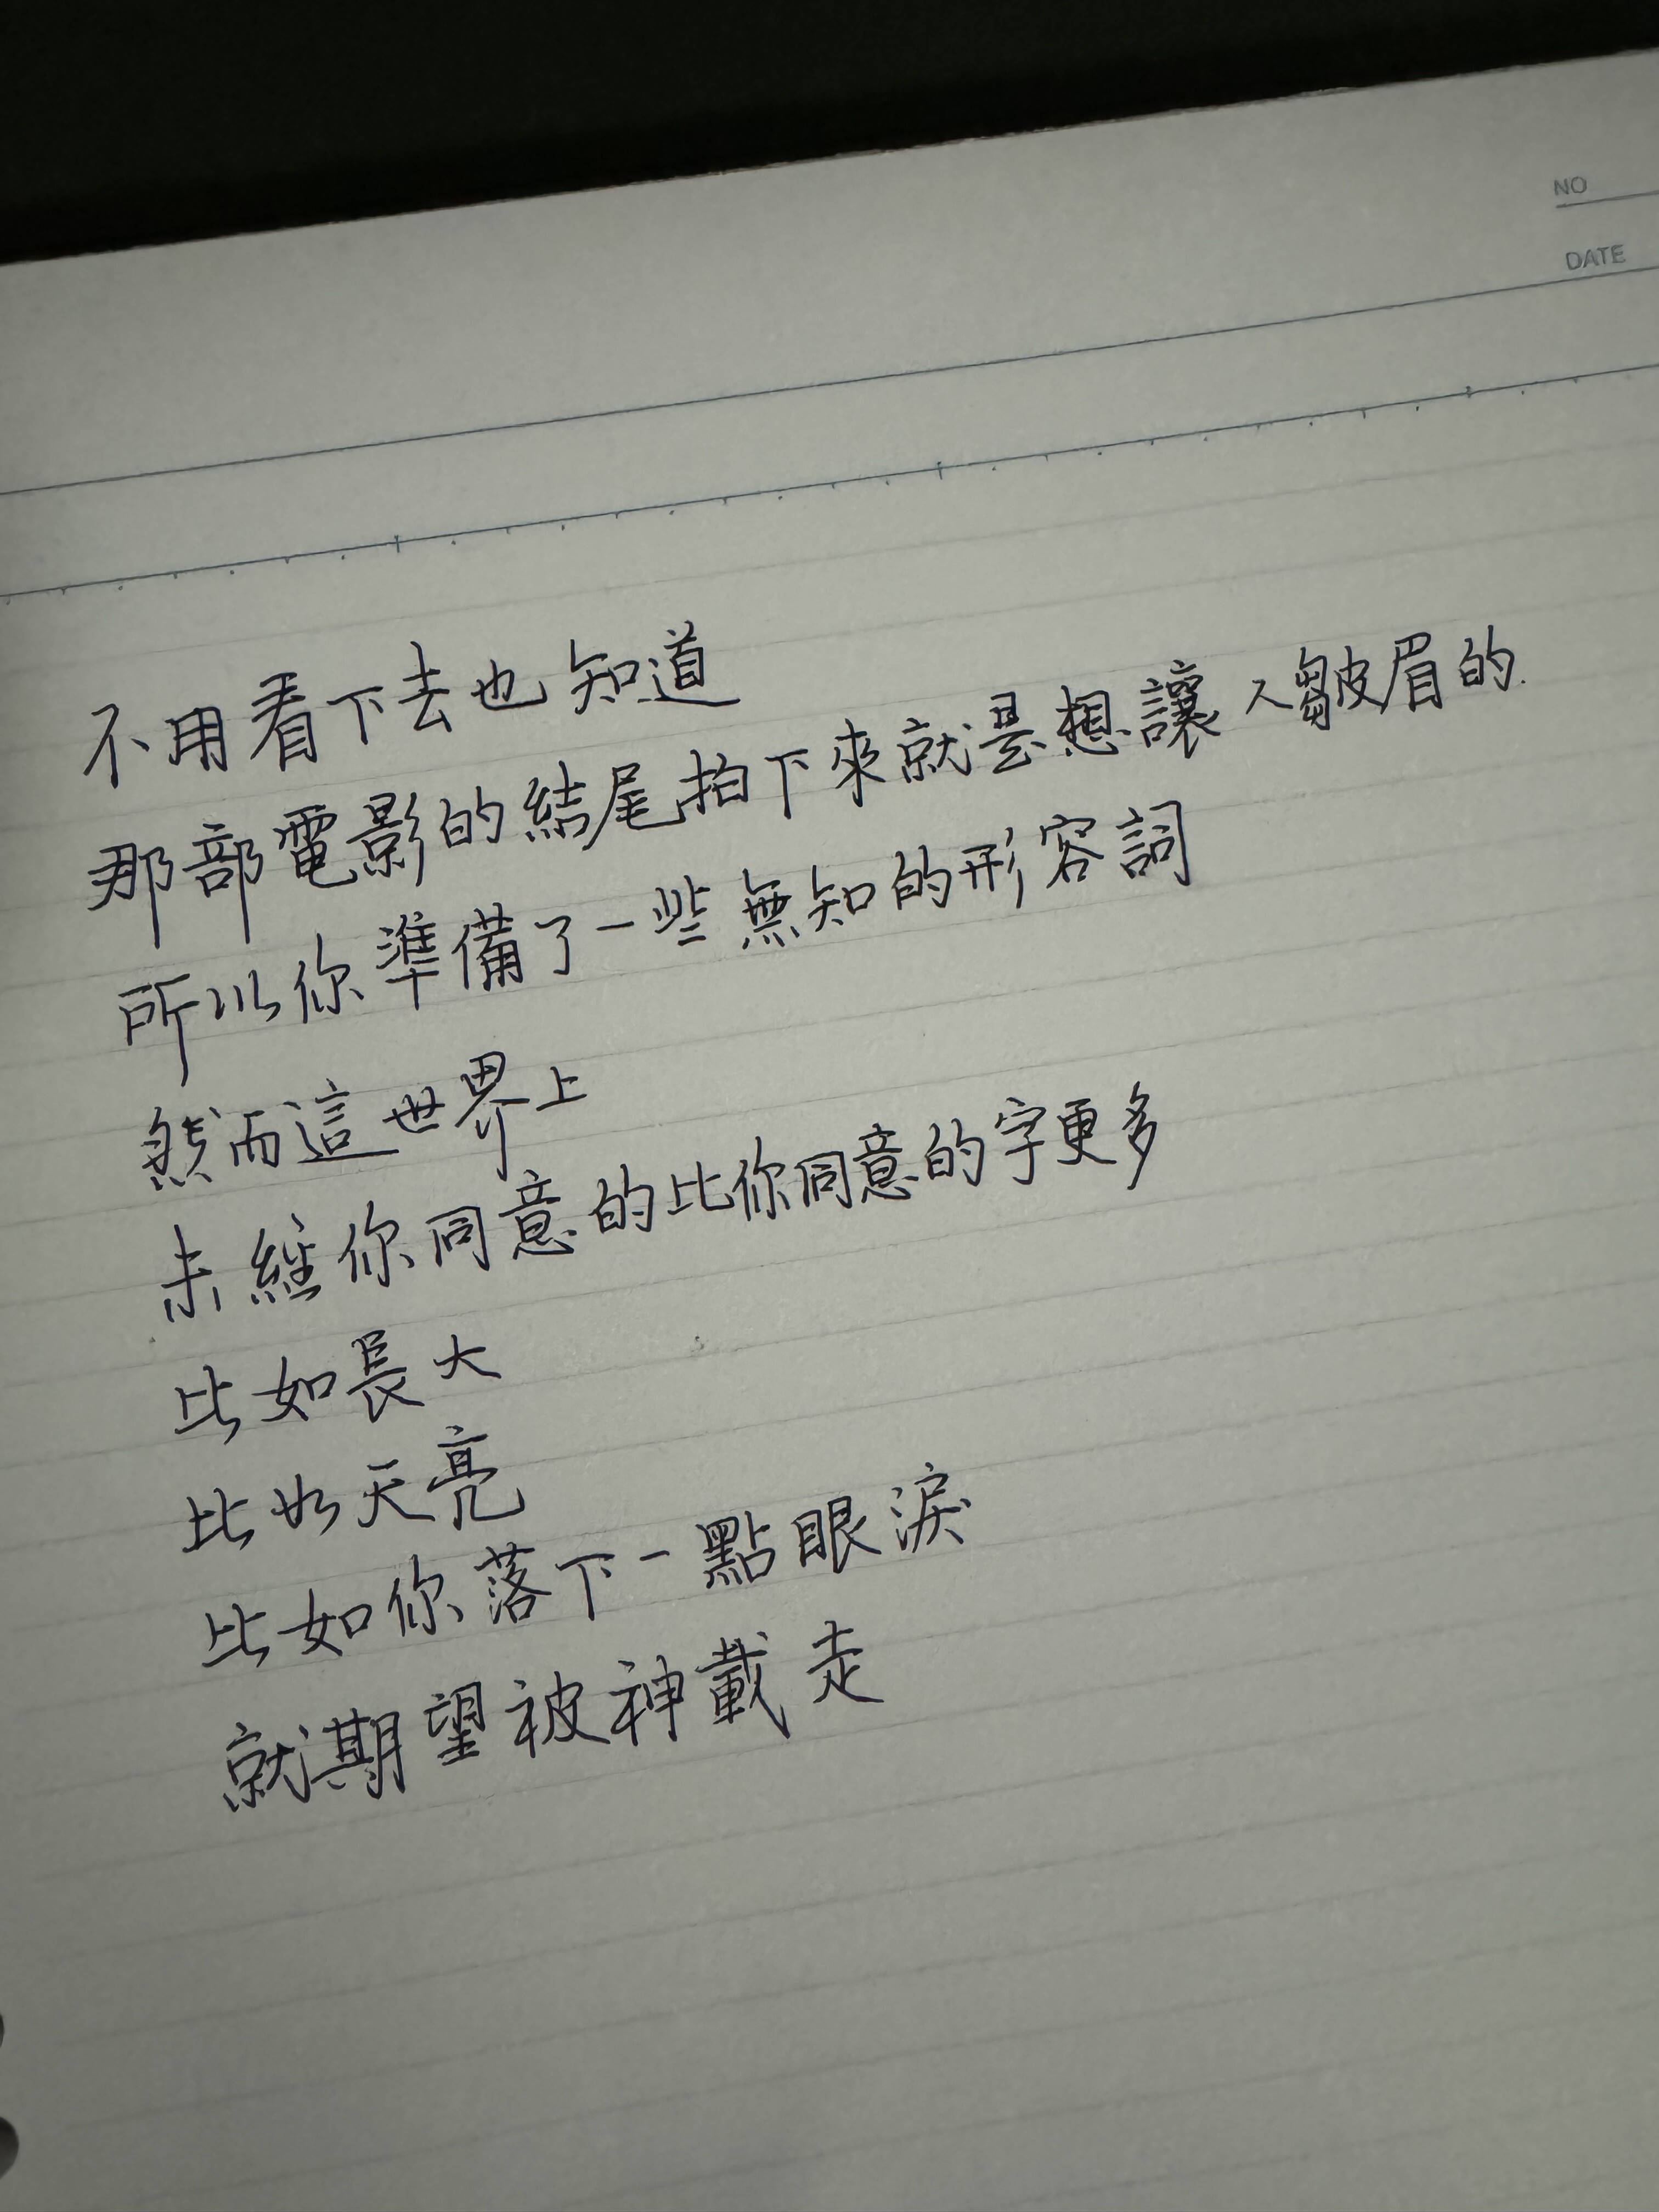 NO
DATE
不用看下去也知道
那部電影的結尾拍下來就是想讓人皺眉的.
所以你準備了一些無知的形容詞
然而這世界上
未經你同意的比你同意的字更多
比如長大
比如天亮
比如你落下一點眼淚
就期望被神載走